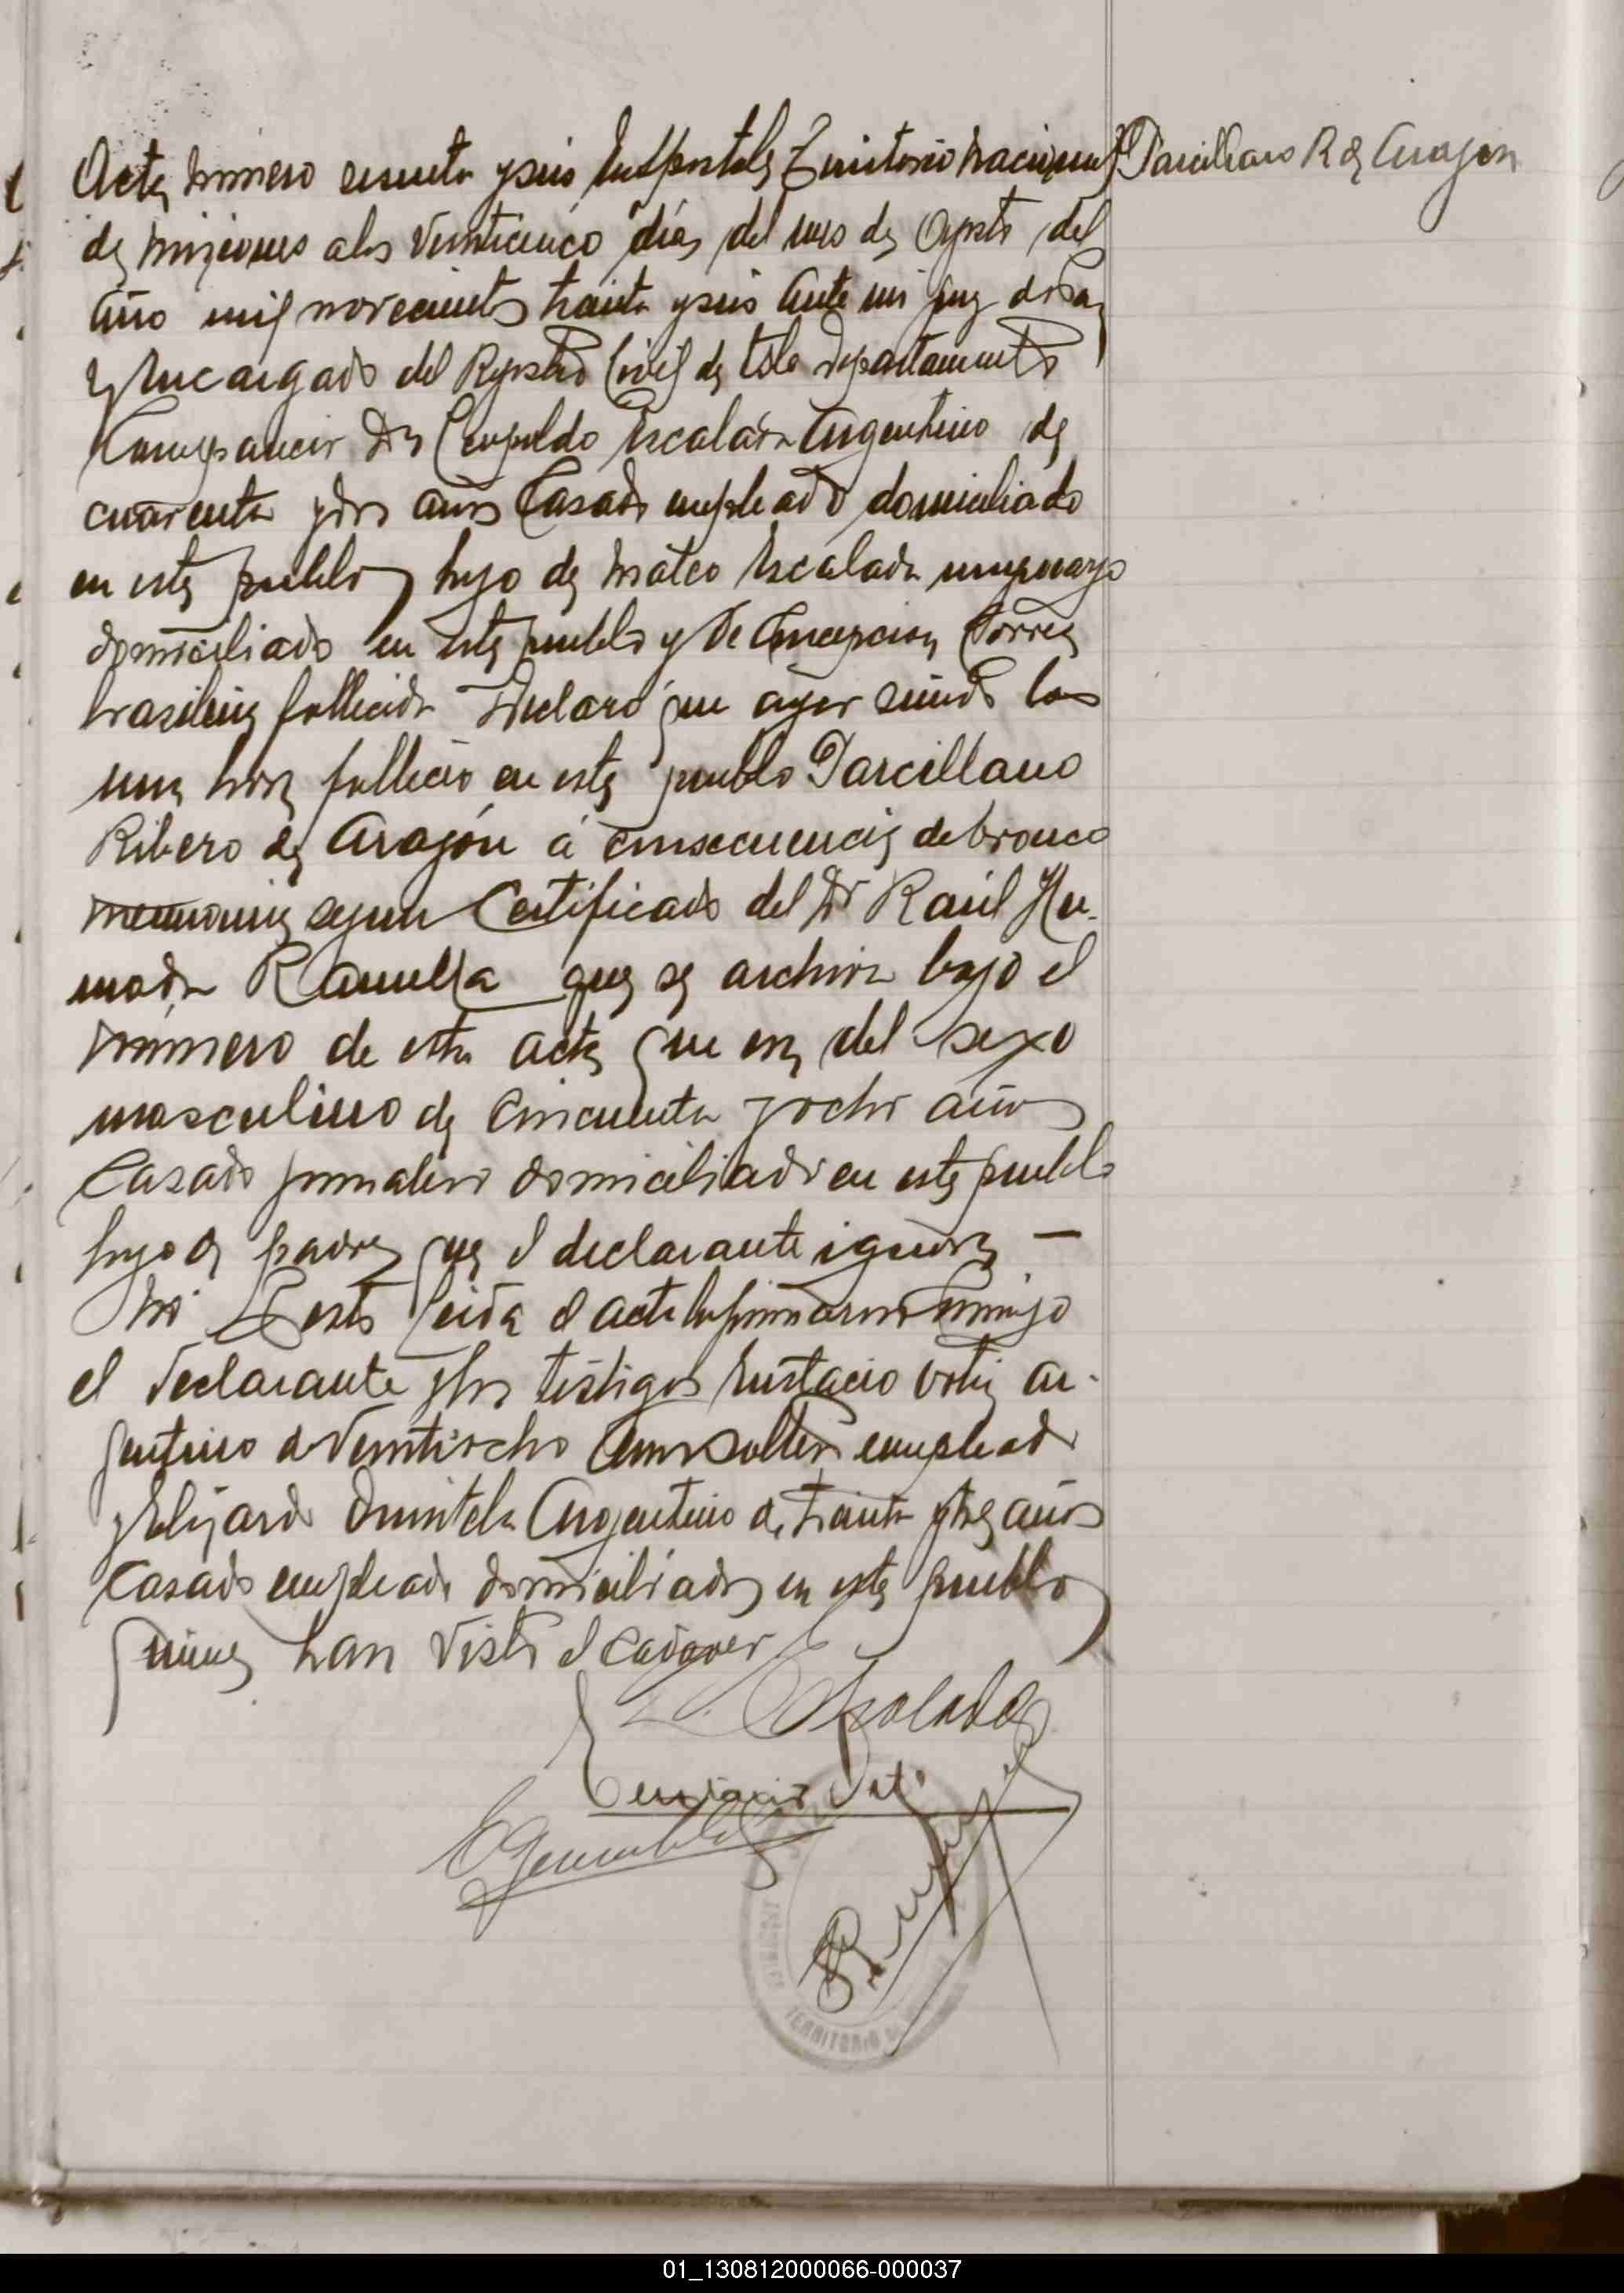 Acta número sesenta y seis En Apóstoles Territorio nacional
de misiones a los veinticinco días del mes de Agosto del
año mil novecientos treinta y seis Ante mi Juez de Paz
y Encargado del Registro Civil de este departamento
Compareció Don Leopoldo Escalada Argentino de
cuarenta y dos años Casado empleado domiciliado
en este pueblo hijo de Mateo Escalada uruguayo
domiciliado en este pueblo y de Concepcion Torres
brasileña fallecida Declaró que ayer siendo las
una hora falleció en este pueblo Parcillano
Ribero de Aragón á consecuencia de bronco
neumonia segun Certificado del Dr Raúl Hu-
mada Ramella que se archiva bajo el
número de esta acta que era del sexo
masculino de cincuenta y ocho años
Casado jornalero domiciliado en este pueblo
hijo de padres que el declarante ignora —
leida el acta la firmaron conmigo
el declarante y los testigos Eustacio ortiz ar-
gentino de veintiocho años soltero empleado
y Argentino de treinta y tres años
Casado empleado domiciliados en este pueblo
quienes han visto el cadaver
L. Escalada
Parcillano R de Aragon
TERRITORIO DE
01_130812000066-000037